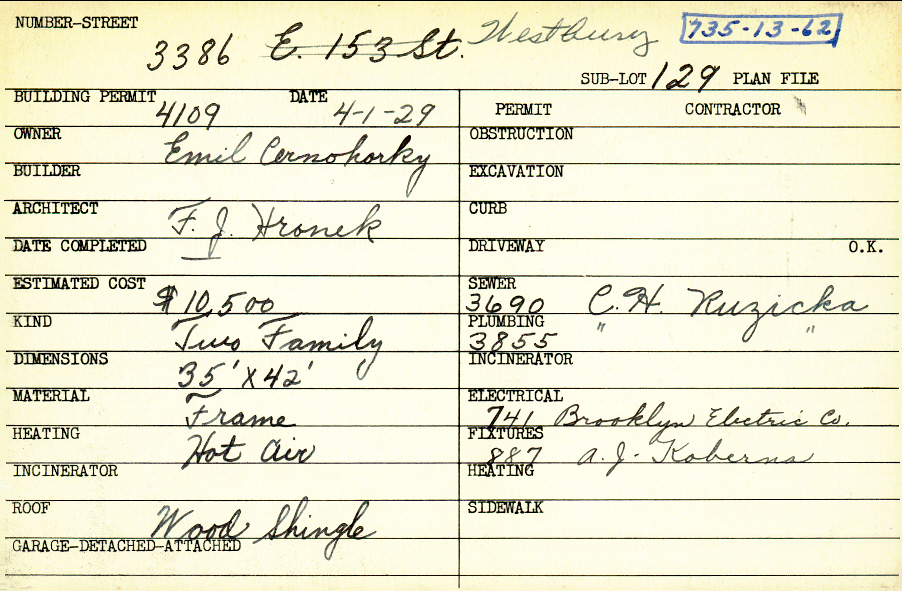 NUMBER-STREET
3386 E. 153 St. Westbury 735-13-62
SUB-LOT 129 PLAN FILE
BUILDING PERMIT 4109 DATE 4-1-29
OWNER Emil Cernohorky
BUILDER
ARCHITECT F. J. Hronek
DATE COMPLETED
ESTIMATED COST $10,500
KIND Two Family
DIMENSIONS 35' X 42'
MATERIAL Frame
HEATING Hot Air
INCINERATOR
ROOF Wood Shingle
GARAGE-DETACHED-ATTACHED
PERMIT CONTRACTOR
OBSTRUCTION
EXCAVATION
CURB
DRIVEWAY O.K.
SEWER
3690 C. H. Ruzicka
PLUMBING " "
3855
INCINERATOR
ELECTRICAL
741 Brooklyn Electric Co.
FIXTURES
887 A. J. Koberna
HEATING
SIDEWALK